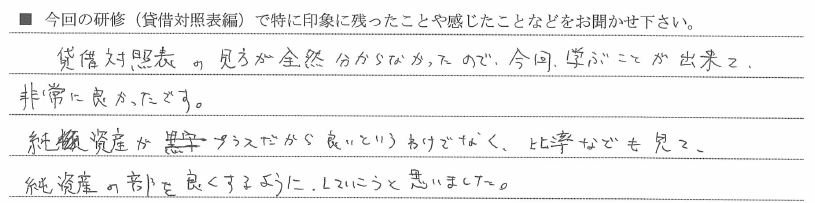 ■ 今回の研修（貸借対照表編）で特に印象に残ったことや感じたことなどをお聞かせ下さい。
貸借対照表の見方が全然分からなかったので、今回、学ぶことが出来て、
非常に良かったです。
純資産がプラスだから良いというわけでなく、比率なども見て、
純資産の部を良くするように、していこうと思いました。